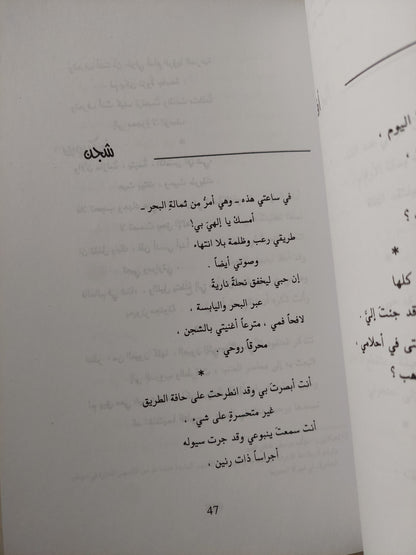 شجن
في ساعتي هذه ـ وهي أمرُّ من ثمالةِ البحر ـ
أمسكْ يا إلهيَ بي!
طريقي رعب وظلمة بلا انتهاء
وصوتي أيضاً .
إن حبي ليخفق نحلةً ناريةً
عبر البحر واليابسة ،
لافحاً فمي، مترعاً أغنيتي بالشجن ،
محرقاً روحي .
*
أنت أبصرتَ بي وقد انطرحت على حافة الطريق
غير متحسرةٍ على شيء .
أنت سمعتَ ينبوعي وقد جرت سيوله
أجراساً ذات رنين .
47
اليوم ،
؟
*
كلها
قد جئتَ إليَّ .
في أحلامي .
؟